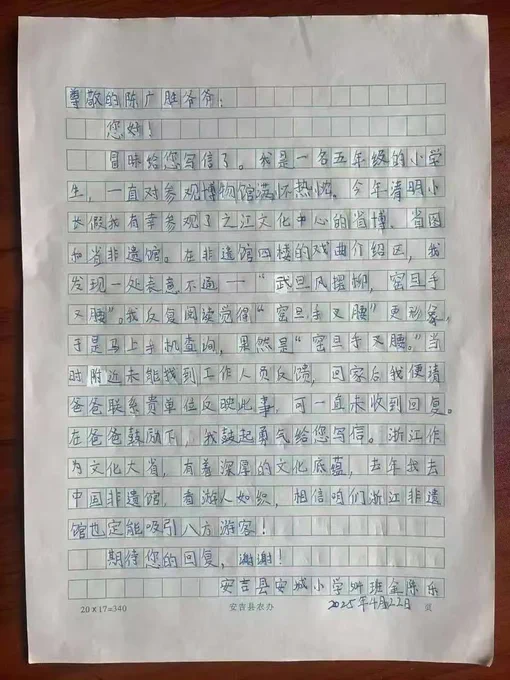 尊敬的陈广胜爷爷：
您好！
冒昧给您写信了。我是一名五年级的小学
生，一直对参观博物馆满怀热忱。今年清明小
长假我有幸参观了之江文化中心的省博、省图
和省非遗馆。在非遗馆四楼的戏曲介绍区，我
发现一处表意不通——“武旦风摆柳，窑旦手
叉腰”。我反复阅读觉得“窑旦手叉腰”更形象，
于是马上手机查询，果然是“窑旦手叉腰。”当
时附近未能找到工作人员反馈，回家后我便请
爸爸联系贵单位反映此事，可一直未收到回复。
在爸爸鼓励下，我鼓起勇气给您写信。浙江作
为文化大省，有着深厚的文化底蕴，去年我去
中国非遗馆，看游人如织，相信咱们浙江非遗
馆也定能吸引八方游客！
期待您的回复，谢谢！
安吉县安城小学 班金陈乐
20×17=340 安吉县农办 2025年4月22日 页